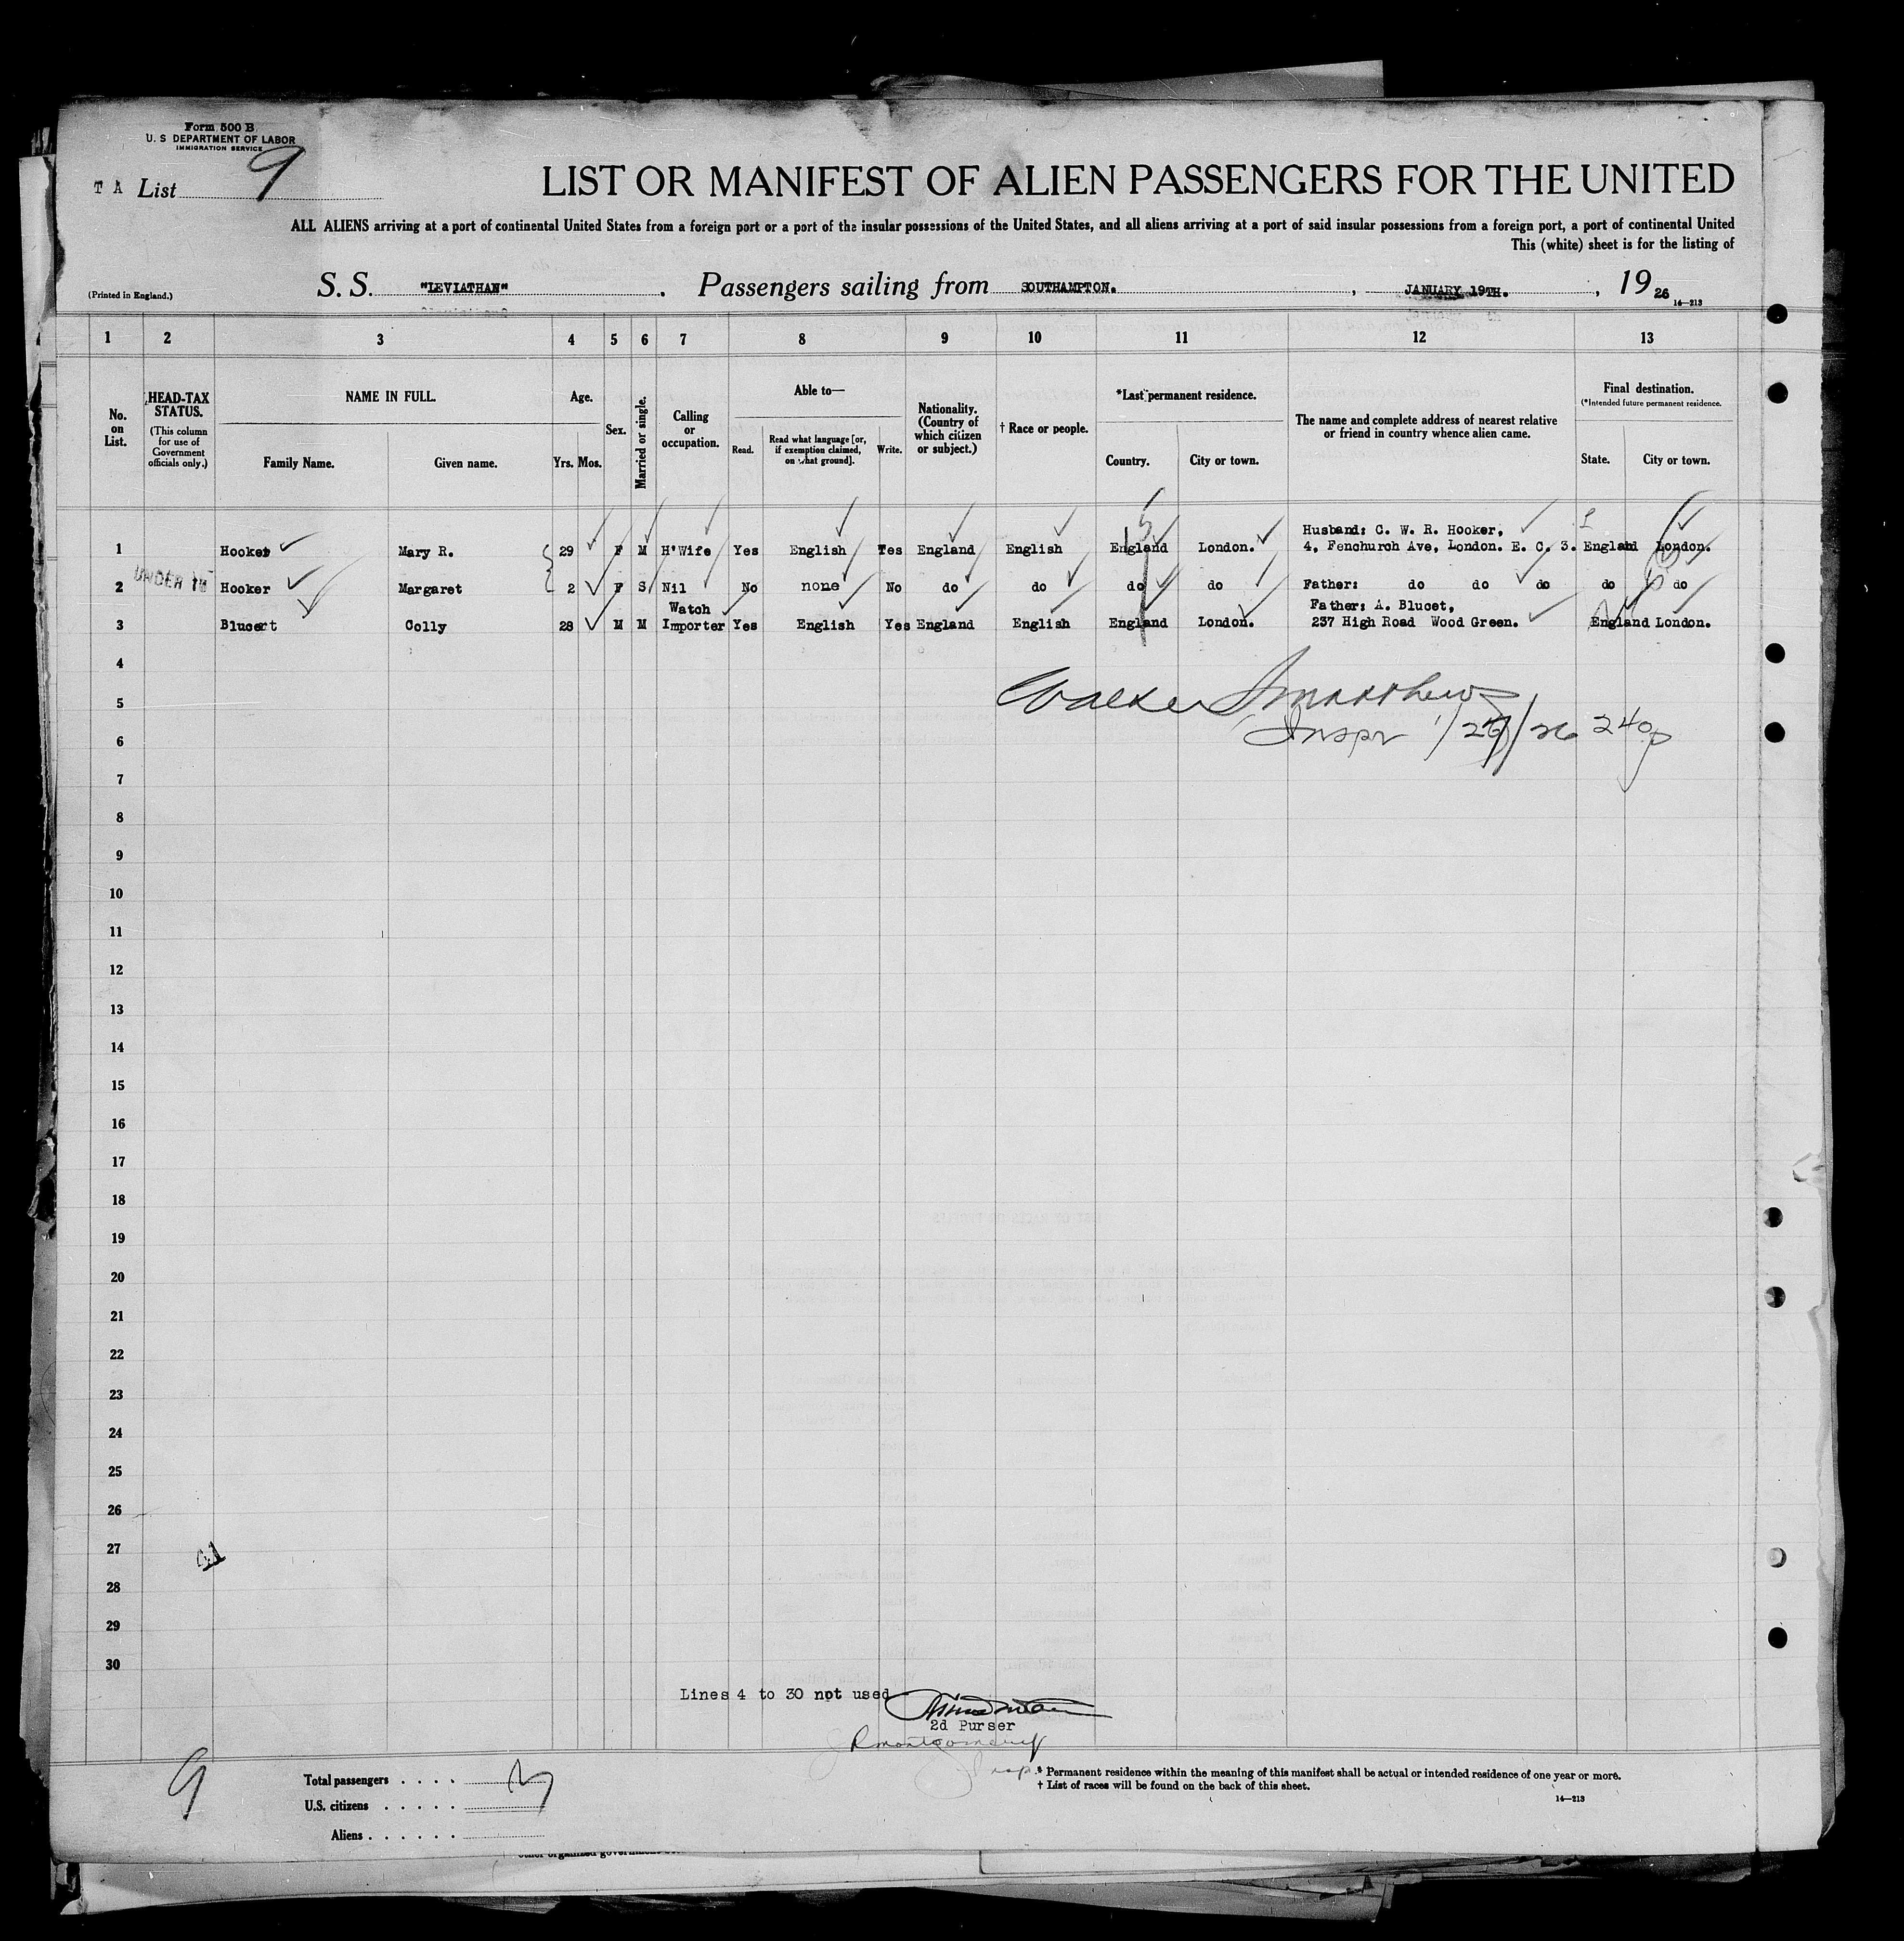 Form 500 B
U. S DEPARTMENT OF LABOR
IMMIGRATION SERVICE
T A List 9
LIST OR MANIFEST OF ALIEN PASSENGERS FOR THE UNITED
ALL ALIENS arriving at a port of continental United States from a foreign port or a port of the insular possessions of the United States, and all aliens arriving at a port of said insular possessions from a foreign port, a port of continental United
This (white) sheet is for the listing of
(Printed in England.)
S. S. "LEVIATHAN" . Passengers sailing from SOUTHAMPTON. , JANUARY 19TH. , 19 26
14—213
1 2 3 4 5 6 7 8 9 10 11 12 13
No. on List.
HEAD-TAX STATUS.
(This column for use of Government officials only.)
NAME IN FULL.
Family Name. Given name.
Age.
Yrs. Mos.
Sex.
Married or single.
Calling or occupation.
Able to—
Read. Read what language [or, if exemption claimed, on what ground]. Write.
Nationality. (Country of which citizen or subject.)
† Race or people.
*Last permanent residence.
Country. City or town.
The name and complete address of nearest relative or friend in country whence alien came.
Final destination.
(*Intended future permanent residence.
State. City or town.
Husband: C. W. R. Hooker,
1 Hooker Mary R. 29 F M H'Wife Yes English Yes England English England London. 4, Fenchurch Ave, London. E. C. 3. England London.
UNDER 16
2 Hooker Margaret 2 F S Nil No none No do do do do Father: do do do do do
Watch Father: A. Blucet,
3 Colly 28 M M Importer Yes English Yes England English England London. 237 High Road Wood Green. England London.
4
5
Inspr 1/ /26 240p
6
7
8
9
10
11
12
13
14
15
16
17
18
19
20
21
22
23
24
25
26
27
28
29
30
Lines 4 to 30 not used
2d Purser
JR Montgomery
Insp.
9
Total passengers . . . . 3
U.S. citizens . . . . .
Aliens . . . . . .
* Permanent residence within the meaning of this manifest shall be actual or intended residence of one year or more.
† List of races will be found on the back of this sheet.
14—213